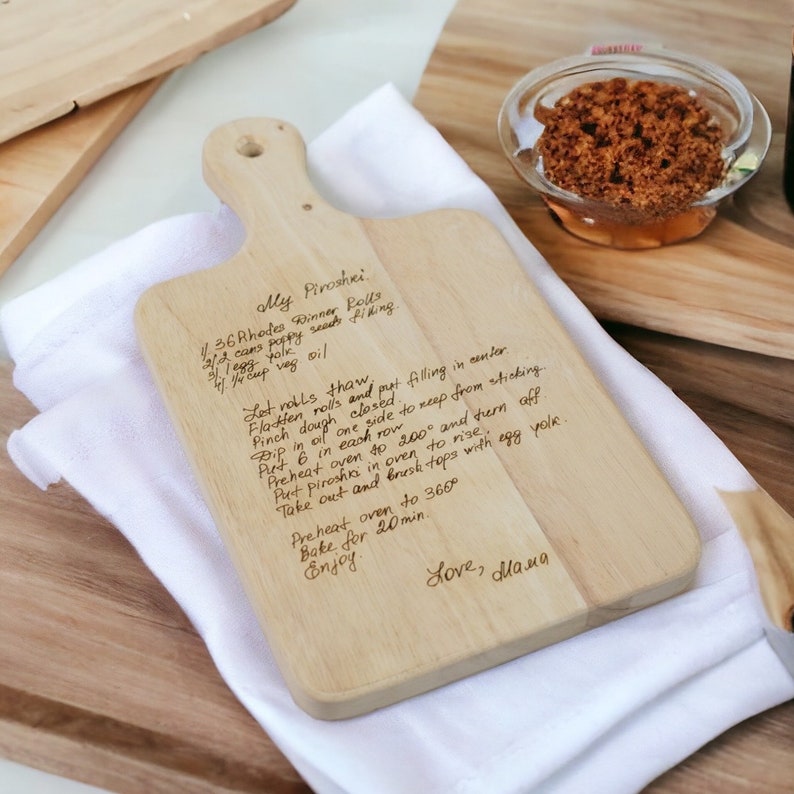 My Piroshki.
1/ 36 Rhodes Dinner Rolls
2/ 2 cans poppy seeds filling
3/ 1 egg yolk
4/ 1/4 cup veg oil
Let rolls thaw.
Flatten rolls and put filling in center.
Pinch dough closed.
Dip in oil one side to keep from sticking.
Put 6 in each row
Preheat oven to 200° and turn off.
Put piroshki in oven to rise.
Take out and brush tops with egg yolk.
Preheat oven to 360°
Bake for 20 min.
Enjoy.
Love, Мама